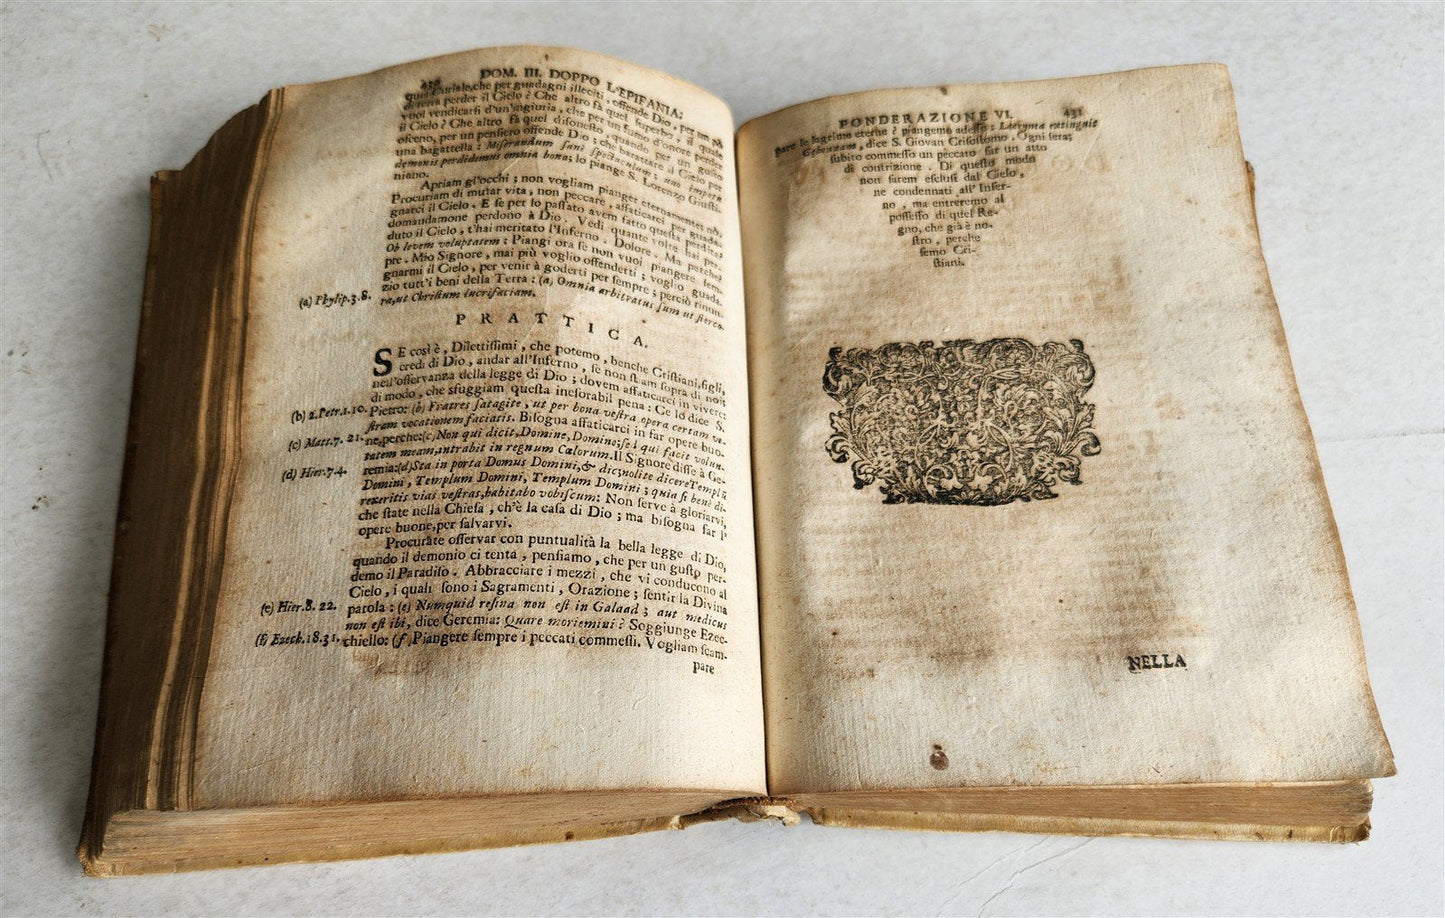 430 DOM. III. DOPPO L'EPIFANIA:
che per guadagni illeciti, offende Dio, per un pò
di terra perder il Cielo? Che altro fà quel Superbo, il quale
vuol vendicarsi d'un'ingiuria, che per un fumo d'onore perde
il Cielo? Che altro fà quel disonesto, quando per un gusto
osceno, per un pensiero offende Dio; che barattare il Cielo per
una bagattella: Miserandum sanè spectaculum; nos impera
demonis perdidimus omnia bona; lo piange S. Lorenzo Giusti-
niano.
Apriam gl'occhi; non vogliam pianger eternamente.
Procuriam di mutar vita, non peccare, affaticarci per guada-
gnarci il Cielo. E se per lo passato avem fatto questa perdita,
domandamone perdono à Dio. Vedi quante volte hai per-
duto il Cielo, t'hai meritato l'Inferno. Dolore. Ma perche?
Ob levem voluptatem: Piangi ora se non vuoi piangere sem-
pre. Mio Signore, mai più voglio offenderti; voglio guada-
gnarmi il Cielo, per venir à goderti per sempre; perciò rinun-
zio tutt'i beni della Terra: (a) Omnia arbitratus sum ut sterco-
(a) Phylip. 3. 8. ra, ut Christum lucrifaciam.
PRATTICA.
SE così è, Dilettissimi, che potemo, benche Cristiani, figli,
eredi di Dio, andar all'Inferno, se non stiam sopra di noi
nell'osservanza della legge di Dio; dovem affaticarci in vivere
di modo, che sfuggiam questa inesorabil pena: Ce lo dice S.
(b) 2. Petr. 1. 10. Pietro: (b) Fratres satagite, ut per bona vestra opera certam ve-
stram vocationem faciatis. Bisogna affaticarci in far opere buo-
(c) Matt. 7. 21. ne, perche: (c) Non qui dicit, Domine, Domine; sed qui facit volun-
tatem meam, intrabit in regnum Cœlorum. Il Signore disse à Ge-
(d) Hier. 7. 4. remia: (d) Sta in porta Domus Domini, & dic; nolite dicere Templū
Domini, Templum Domini, Templum Domini; quia si benè di-
rexeritis vias vestras, habitabo vobiscum: Non serve à gloriarvi,
che state nella Chiesa, ch'è la casa di Dio; ma bisogna far l'
opere buone, per salvarvi.
Procurate osservar con puntualità la bella legge di Dio,
quando il demonio ci tenta, pensiamo, che per un gusto per-
demo il Paradiso. Abbracciare i mezzi, che vi conducono al
Cielo, i quali sono i Sagramenti, Orazione; sentir la Divina
(e) Hier. 8. 22. parola: (e) Numquid resina non est in Galaad; aut medicus
non est ibi, dice Geremia: Quare moriemini? Soggiunge Ezec-
(f) Ezech. 18. 31. chiello: (f) Piangere sempre i peccati commessi. Vogliam scam-
pare
PONDERAZIONE VI. 431
pare le lagrime eterne? piangemo adesso: Lacryma extinguit
Gehennam, dice S. Giovan Crisostomo. Ogni sera;
subito commesso un peccato far un atto
di contrizione. Di questo modo
non sarem esclusi dal Cielo,
ne condennati all'Infer-
no, ma entreremo al
possesso di quel Re-
gno, che già è no-
stro, perche
semo Cri-
stiani.
NELLA